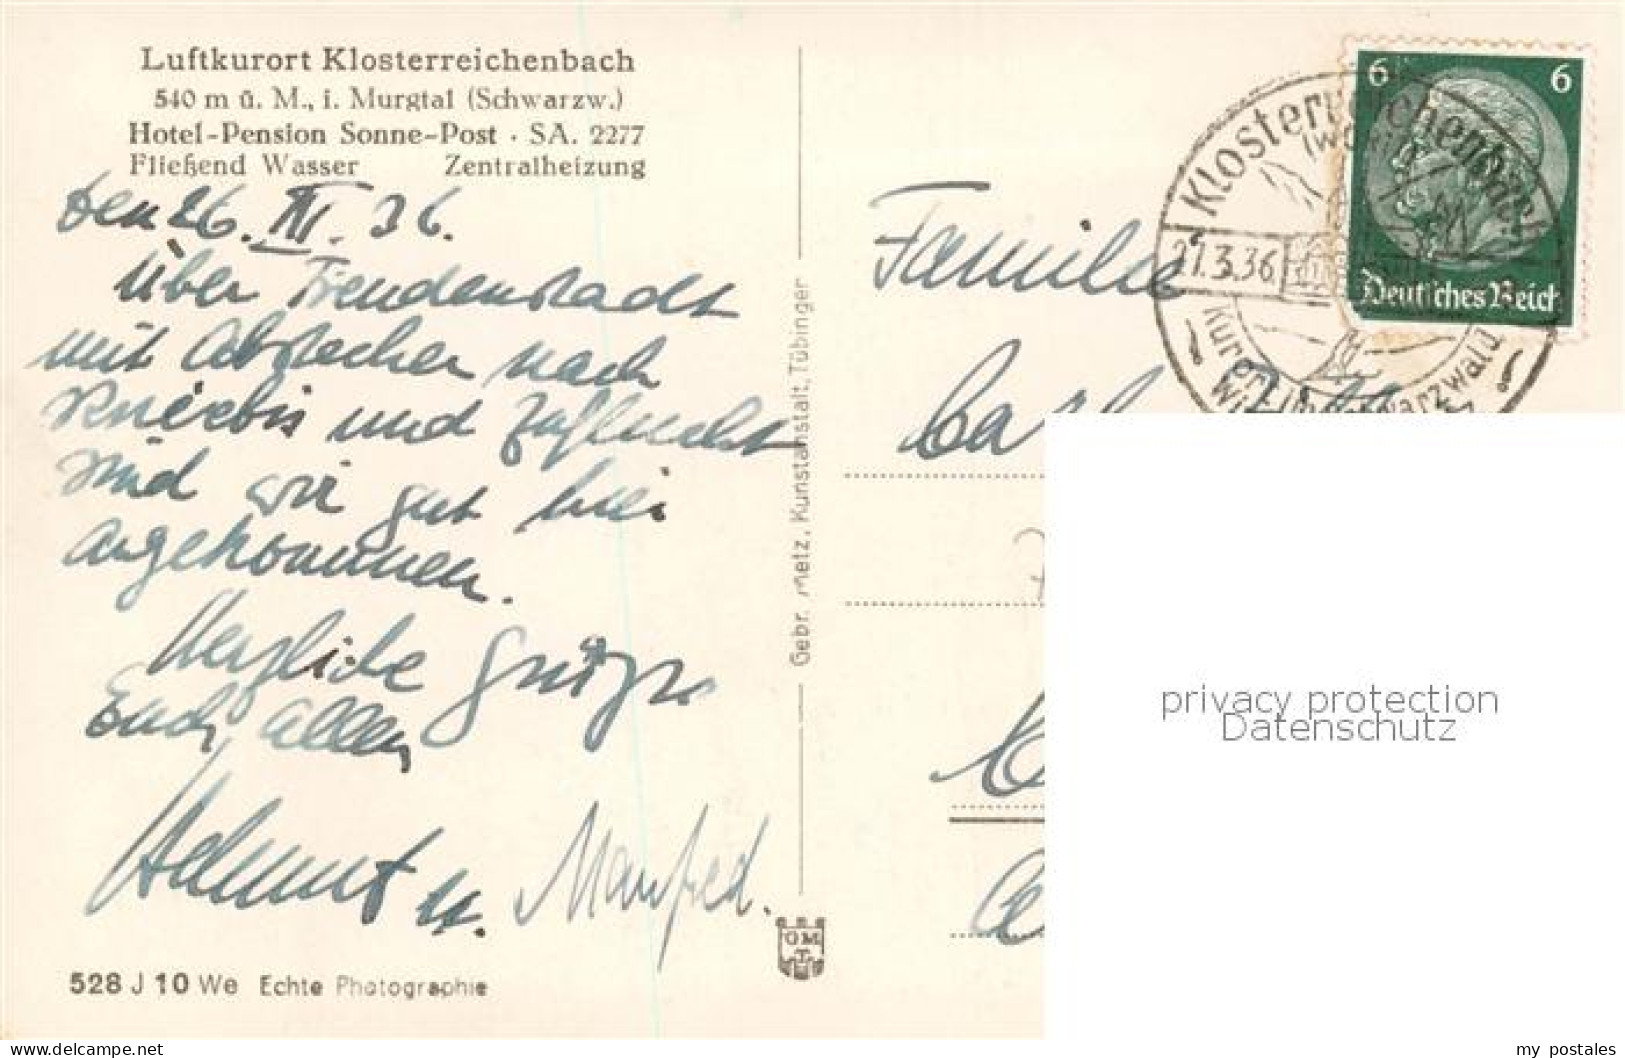 Luftkurort Klosterreichenbach
540 m ü. M., i. Murgtal (Schwarzw.)
Hotel-Pension Sonne-Post · SA. 2277
Fließend Wasser Zentralheizung
den 26. III. 36.
Über Freudenstadt
mit Abstecher nach
Kniebis und Zuflucht
sind wir gut hier
angekommen.
Herzliche Grüße
Euch allen
Helmut u. Manfred.
528 J 10 We Echte Photographie
Gebr. Metz, Kunstanstalt, Tübingen
GM
T
Familie
Carl
6 6
Deutsches Reich
Klosterreichenbach
27.3.36
Kurort im Schwarzwald
privacy protection
Datenschutz
www.delcampe.net
my_postales